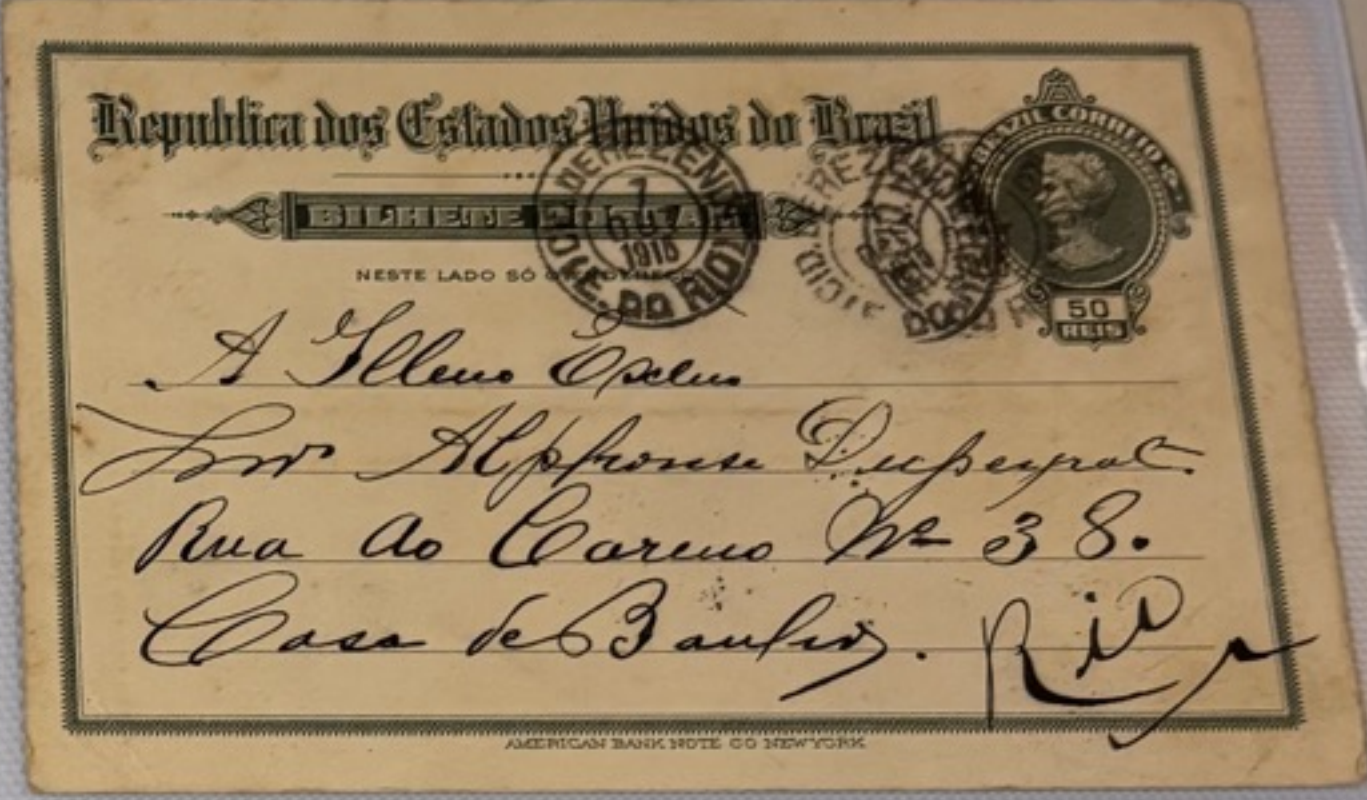 Republica dos Estados Unidos do Brazil
BILHETE POSTAL
NESTE LADO SÓ O ENDEREÇO
BRAZIL CORREIO
50
REIS
DE REZENDE
7
1915
E. DO RIO
A Illmo Exmo
Snr Alphonse Dupeyrat.
Rua do Carmo Nº 38.
Casa de Banhos.
Rio
AMERICAN BANK NOTE CO NEW YORK